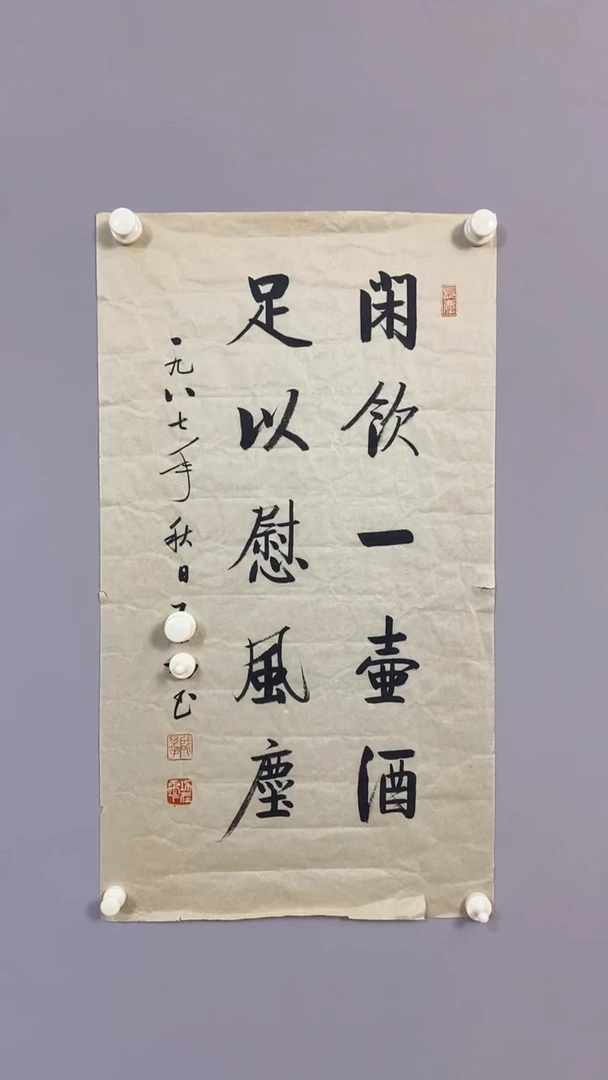 閑飲一壺酒
足以慰風塵
一九八七年秋日